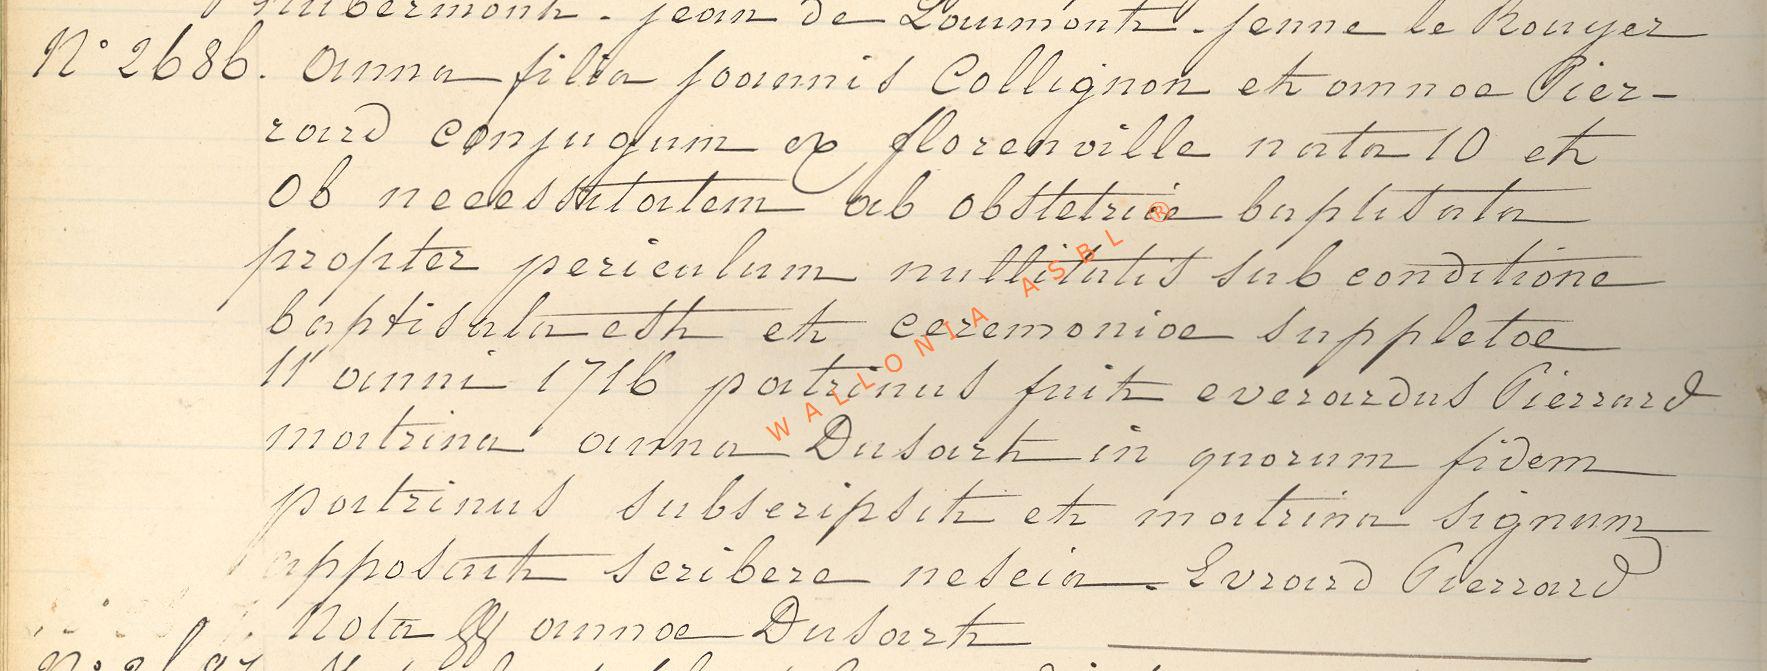 hubermont - jean de Laumont - jenne le Rouyer
N° 2686. Anna filia Joannis Collignon et annae Pier-
rard conjugum ex florenville nata 10 et
ob necessitatem ab obstetrice baptisata
propter periculum nullitatis sub conditione
baptisata est et ceremoniae suppletae
11 anni 1716 patrinus fuit everardus Pierrard
matrina anna Dusart in quorum fidem
patrinus subscripsit et matrina signum
apposuit scribere nescia - Evrard Pierrard
Nota annae Dusart
WALLONIA ASBL ®